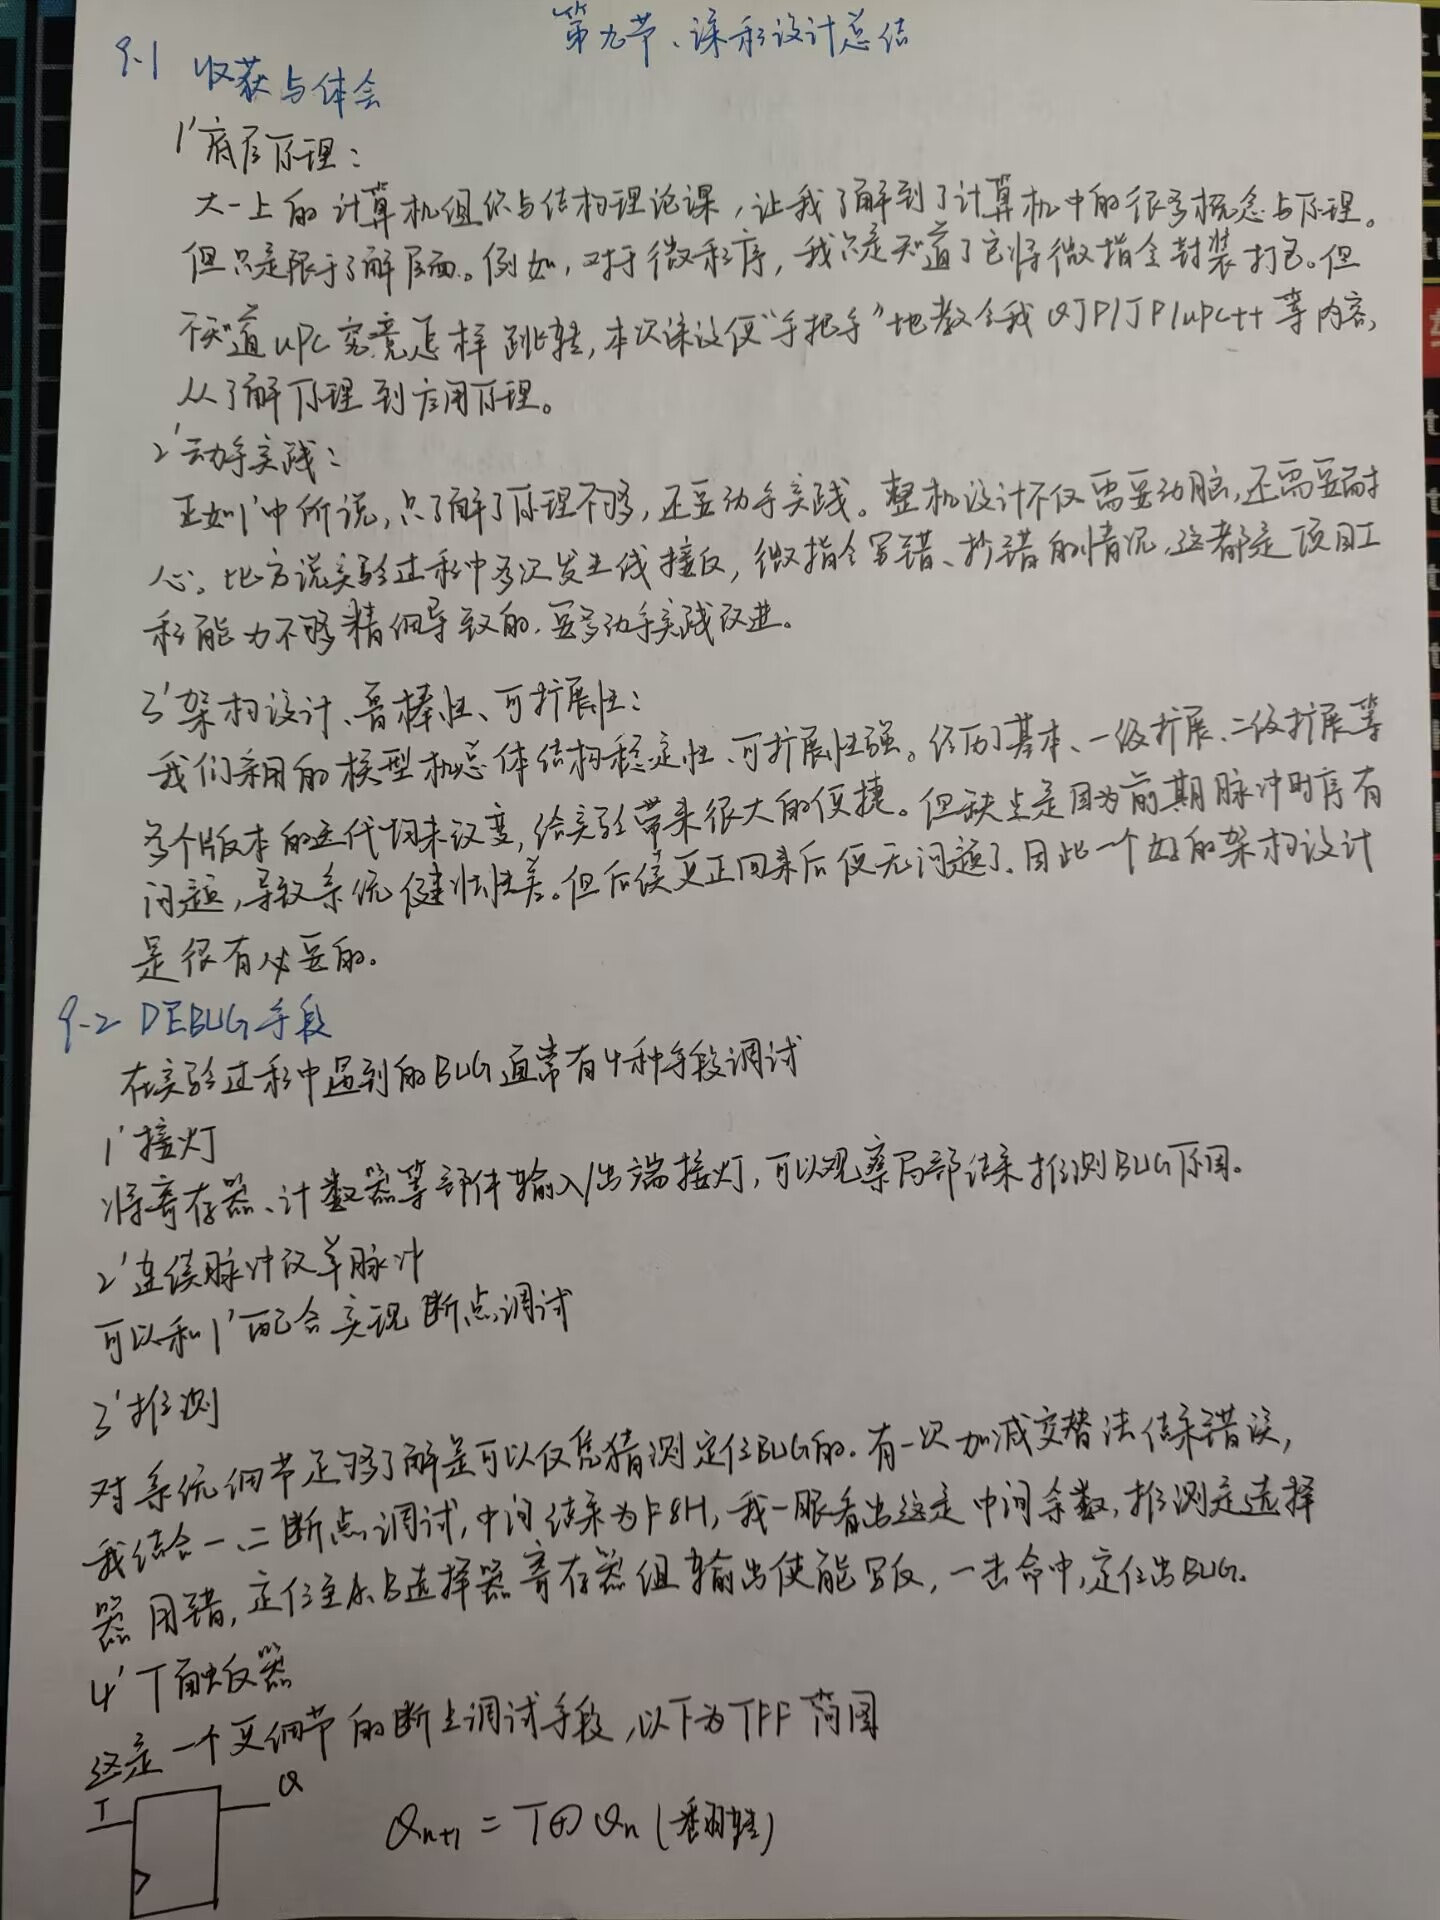 第九节、课程设计总结
9-1 收获与体会
1' 底层原理：
大一上的计算机组织与结构理论课，让我了解到了计算机中的很多概念与原理。
但只是限于了解层面。例如，对于微程序，我只是知道了它将微指令封装打包。但
不知道uPC究竟怎样跳转，本次课设便“手把手”地教会我QJP/JP/uPC++等内容，
从了解原理到应用原理。
2' 动手实践：
正如1'中所说，只了解了原理不够，还要动手实践。整机设计不仅需要动脑，还需要耐
心。比方说实验过程中多次发生线接反，微指令写错、抄错的情况，这都是项目工
程能力不够精细导致的，要多动手实践改进。
3' 架构设计、鲁棒性、可扩展性：
我们采用的模型机总体结构稳定性、可扩展性强。经历了基本、一级扩展、二级扩展等
多个版本的迭代均未改变，给实验带来很大的便捷。但缺点是因为前期脉冲时序有
问题，导致系统健壮性差。但后续更正回来后便无问题了，因此一个好的架构设计
是很有必要的。
9-2 DEBUG手段
在实验过程中遇到的BUG通常有4种手段调试
1' 接灯
将寄存器、计数器等部件输入/出端接灯，可以观察局部结果推测BUG原因。
2' 连续脉冲改单脉冲
可以和1'配合实现断点调试
3' 推测
对系统细节足够了解是可以仅凭猜测定位BUG的。有一次加减交替法结果错误，
我结合一、二断点调试，中间结果为F8H，我一眼看出这是中间余数，推测是选择
器用错，定位至A、B选择器寄存器组输出使能写反，一击命中，定位出BUG。
4' T触发器
这是一个更细节的断点调试手段，以下为TFF简图
T Q
Qn+1 = T⊕Qn (翻转)